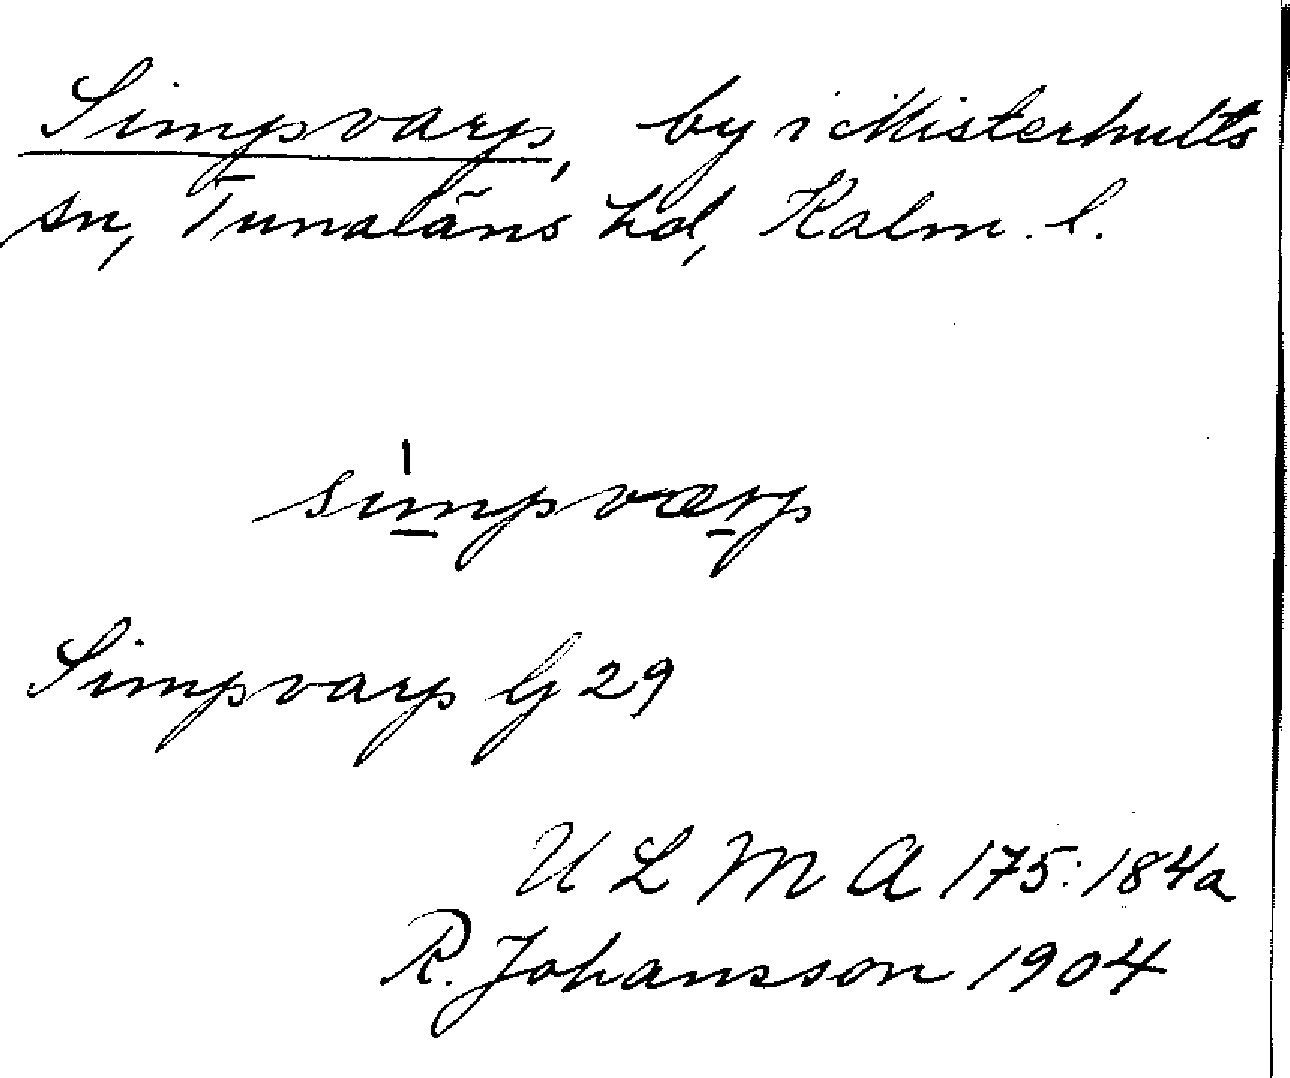 Simpvarp, by i Misterhults
sn, Tunaläns hd, Kalm. l.
simpværp
Simpvarp G 29
U L M A 175:184a
R. Johansson 1904